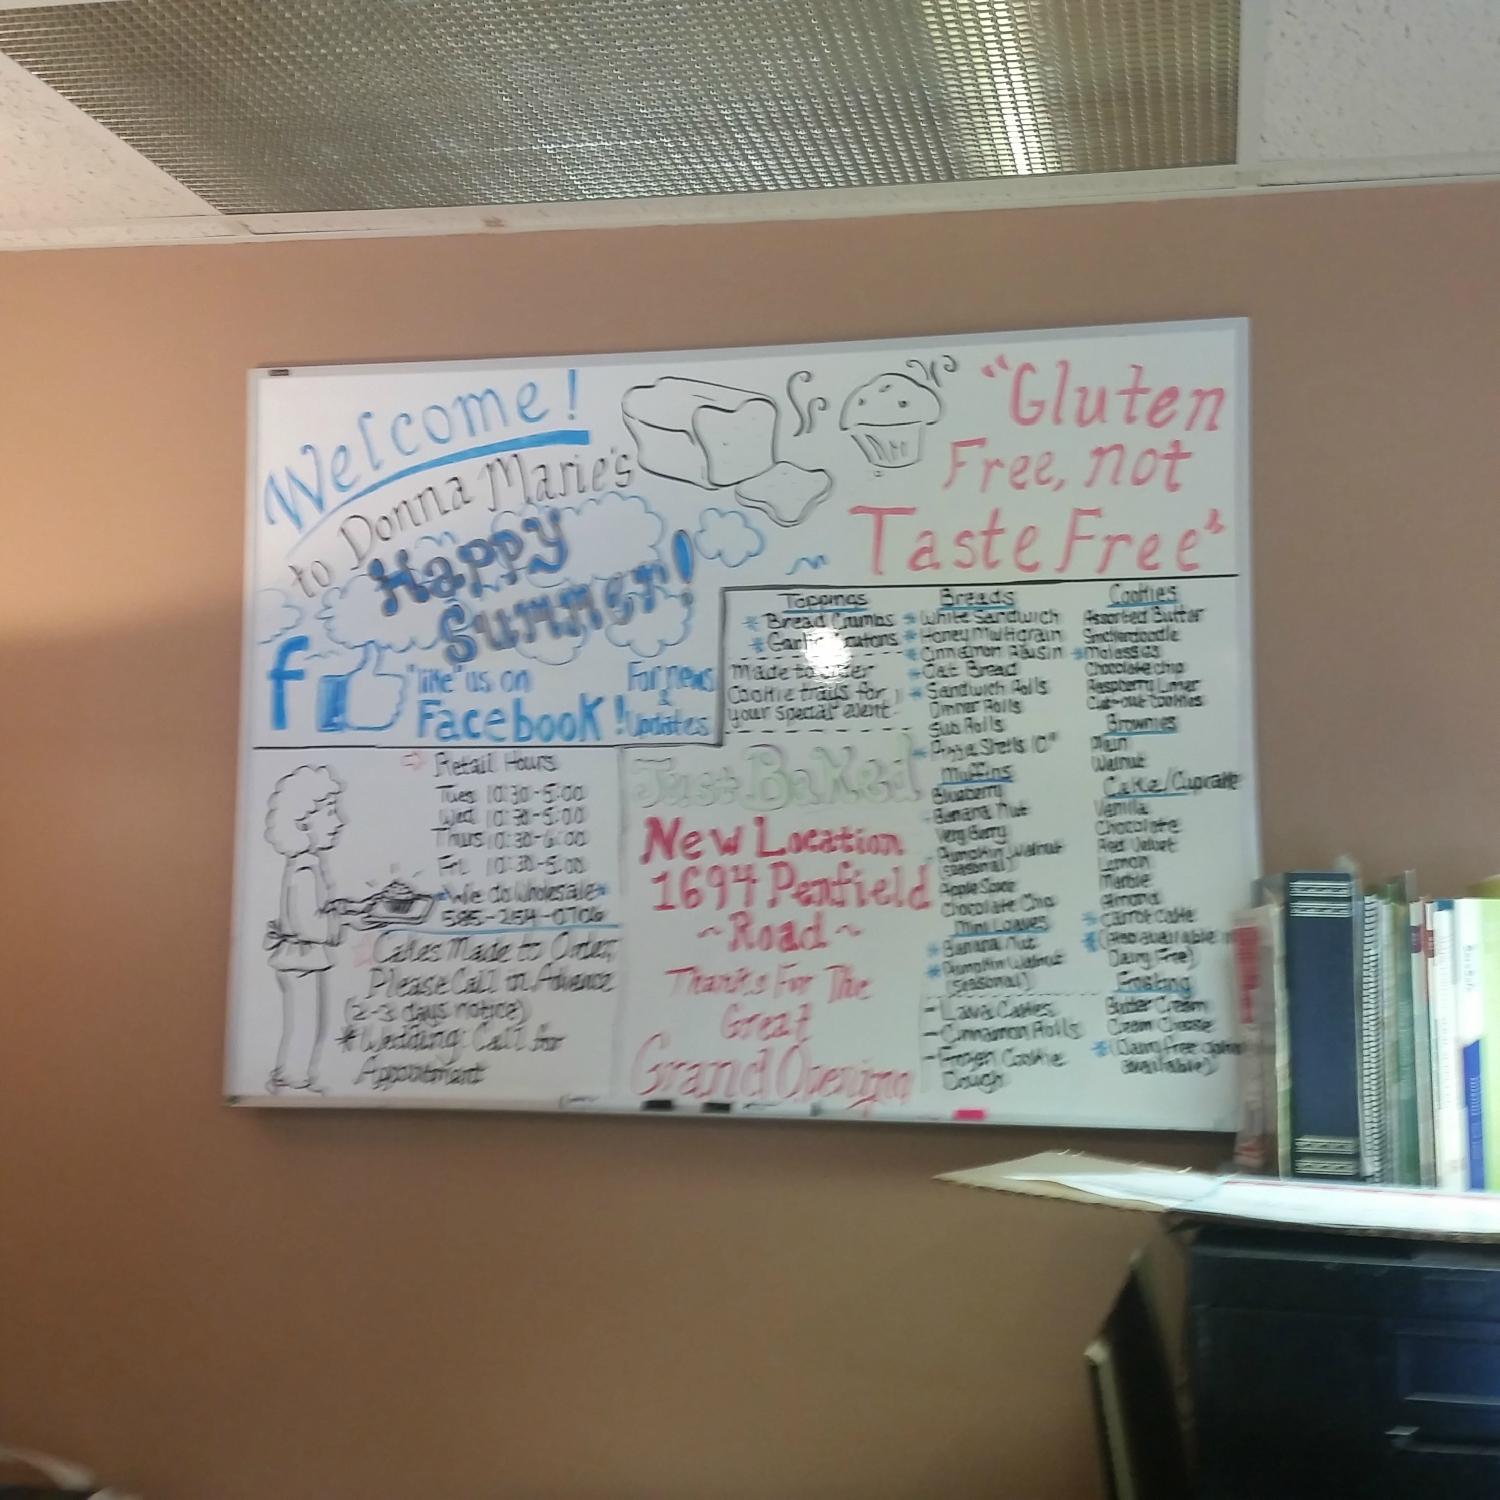 Welcome!
to Donna Marie's
Happy
Summer!
f
"like" us on
Facebook!
For news
&
Updates
"Gluten
Free, not
Taste Free"
Retail Hours
Tues 10:30-5:00
Wed. 10:30-5:00
Thurs 10:30-6:00
Fri. 10:30-5:00
*We do Wholesale*
585-254-0706
Cakes Made to Order,
Please Call in Advance
(2-3 days notice)
*Wedding: Call for
Appointment
Toppings
* Bread Crumbs
* Garlic Croutons
Made to order
Cookie trays for
your special event
Just Baked
New Location
1694 Penfield
~Road~
Thanks For The
Great
Grand Opening
Breads
* White Sandwich
* Honey Multigrain
* Cinnamon Raisin
* Oat Bread
* Sandwich Rolls
Dinner Rolls
Sub Rolls
* Pizza Shells 10"
Muffins
Blueberry
Banana Nut
Very Berry
Pumpkin Walnut
(seasonal)
Apple Spice
Chocolate Chip
Mini Loaves
* Banana Nut
* Pumpkin Walnut
(seasonal)
- Lava Cakes
- Cinnamon Rolls
- Frozen Cookie
Dough
Cookies
Assorted Butter
Snickerdoodle
* Molasses
Chocolate chip
Raspberry Linzer
Cut-out Cookies
Brownies
Plain
Walnut
Cake/Cupcake
Vanilla
Chocolate
Red Velvet
Lemon
Marble
Almond
* Carrot Cake
* (Also available in
Dairy Free)
Frosting
Butter Cream
Cream Cheese
* (Dairy Free
available)